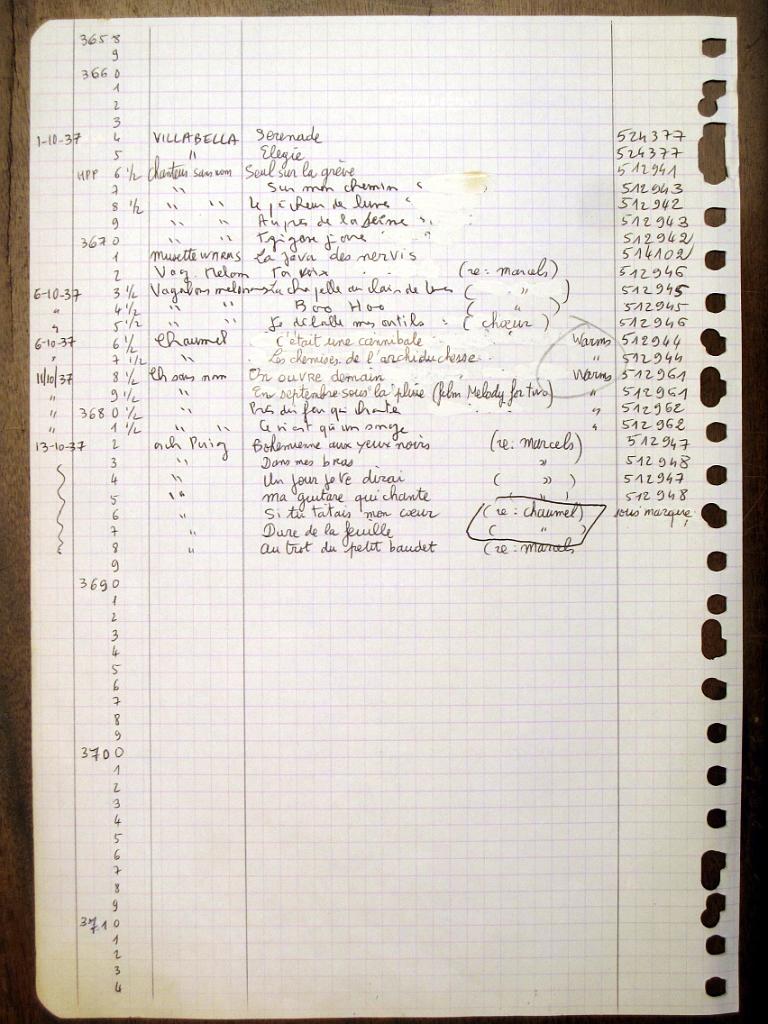 3658
9
3660
1
2
3
1-10-37 4 VILLABELLA Serenade 524377
5 " Elegie 524377
HPP 6 1/2 Chanteur sans nom Seul sur la grève 512941
7 " " Sur mon chemin " 512943
8 1/2 " " Le pêcheur de lune " 512942
9 " " Aupres de la Seine " 512943
3670 " " " 512942
1 musette La java des nervis 514102
2 Vag. Melom Ta voix (re: marcels) 512946
6-10-37 3 1/2 Vagabons La chapelle au clair de lune ( " ) 512945
" 4 1/2 " " Boo Hoo ( " ) 512945
" 5 1/2 " " Je déballe mes outils : (chœur) 512946
6-10-37 6 1/2 Chaumel C'était une cannibale Warms 512944
" 7 1/2 " Les chemises de l'archiduchesse " 512944
11/10/37 8 1/2 Ch sans nom On ouvre demain Warms 512961
" 9 1/2 " En septembre sous la pluie (film Melody for two) " 512961
" 3680 1/2 " Près du feu qui chante " 512962
" 1 1/2 " " Ce n'est qu'un songe " 512962
13-10-37 2 orch Puig Bohemienne aux yeux noirs (re: marcels) 512947
3 " Dans mes bras " 512948
4 " Un jour je te dirai ( " ) 512947
5 " ma guitare qui chante ( " ) 512948
6 " Si tu tatais mon cœur (re: chaumel) sous marque
7 " Dure de la feuille ( " )
8 " au trot du petit baudet (re: marcels
9
3690
1
2
3
4
5
6
7
8
9
3700
1
2
3
4
5
6
7
8
9
3710
1
2
3
4